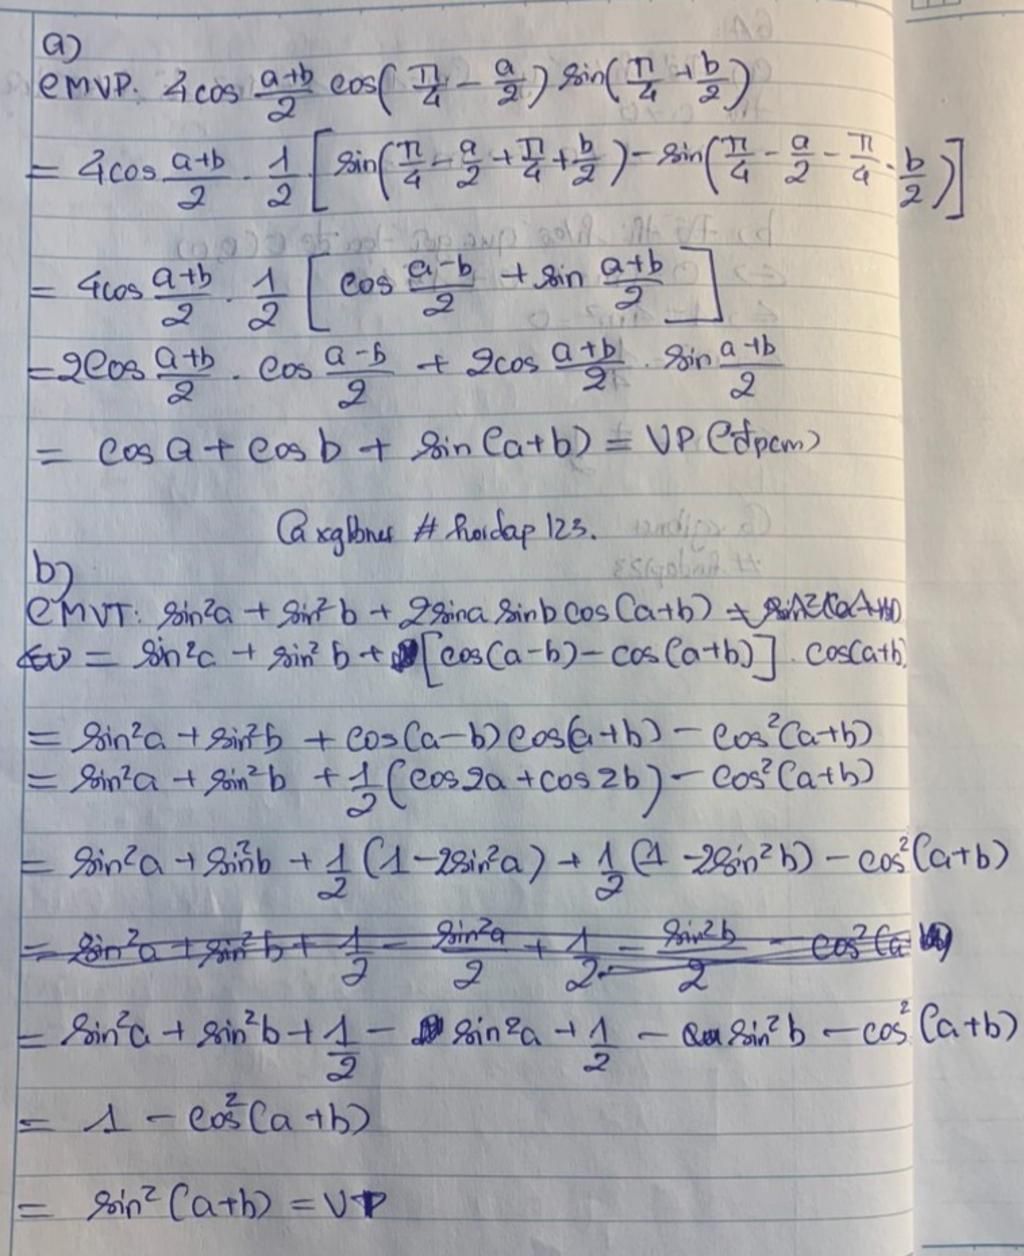 a)
CMVP: 4cos (a+b)/2 cos(π/4 - a/2) sin(π/4 + b/2)
= 4cos (a+b)/2 . 1/2 [sin(π/4 - a/2 + π/4 + b/2) - sin(π/4 - a/2 - π/4 - b/2)]
= 4cos (a+b)/2 . 1/2 [cos (a-b)/2 + sin (a+b)/2]
= 2cos (a+b)/2 . cos (a-b)/2 + 2cos (a+b)/2 . sin (a+b)/2
= cos a + cos b + sin (a+b) = VP (đpcm)
# hoidap123.
b)
CMVT: sin²a + sin²b + 2sina sinb cos(a+b)
= sin²a + sin²b + [cos(a-b) - cos(a+b)] . cos(a+b)
= sin²a + sin²b + cos(a-b) cos(a+b) - cos²(a+b)
= sin²a + sin²b + 1/2 (cos2a + cos2b) - cos²(a+b)
= sin²a + sin²b + 1/2 (1 - 2sin²a) + 1/2 (1 - 2sin²b) - cos²(a+b)
= sin²a + sin²b + 1/2 - sin²a/2 + 1/2 - sin²b/2 - cos²(a
= sin²a + sin²b + 1/2 - sin²a + 1/2 - sin²b - cos²(a+b)
= 1 - cos²(a+b)
= sin²(a+b) = VP